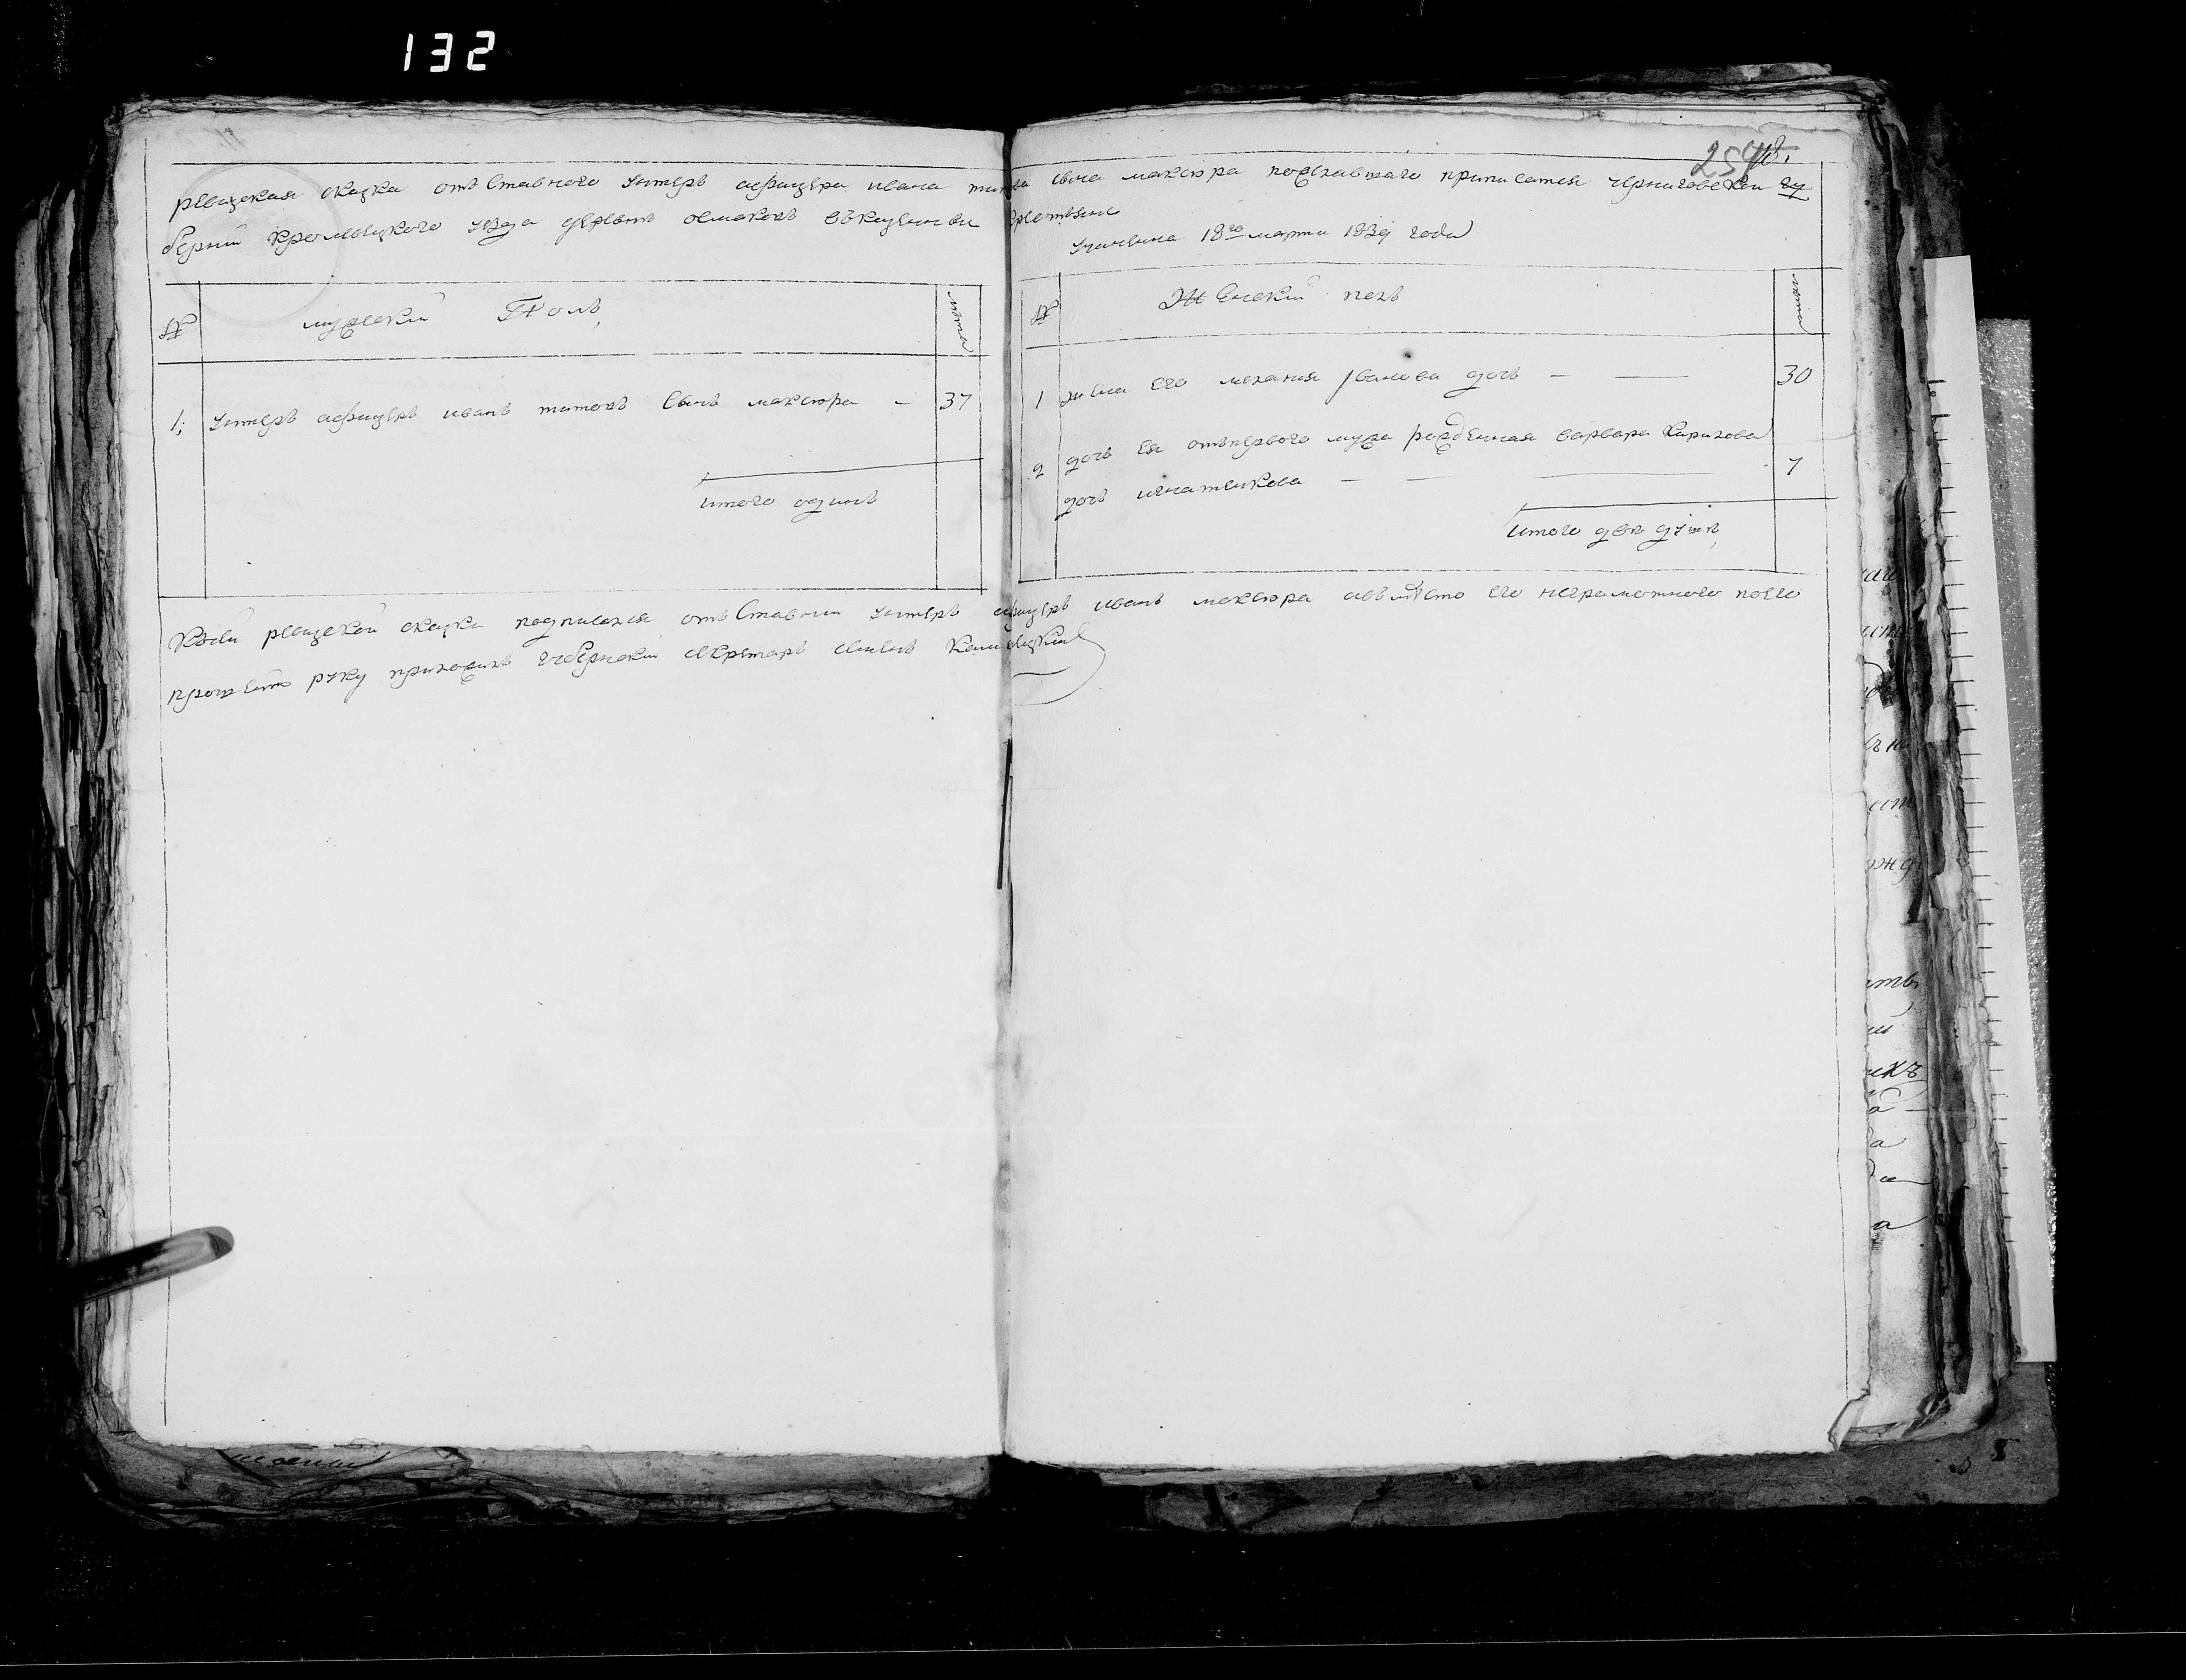 132
254
ревизская сказка отъ ставного унтеръ афицера ивана титова сына максюра пожелавшаго приписатся черниговской гу
берний кролевецкого уезда деревнѣ осмаковъ въказенны
учинена 18го марта 1839 года
№ мужеский Полъ лѣта
1; унтеръ афицеръ иванъ титовъ сынъ максюра — 37
итого одинъ
№ Женский полъ лѣта
1 жена его мелания иванова дочь — — 30
2 дочь ея отъпервого мужа рожденная варвара Кирилова
дочь игнатенкова — — — 7
итого двѣ души
Ксей ревизской сказки подписался отъ ставний унтеръ афицеръ иванъ максюра авместо его неграмотного поего
прошению руку приложилъ губернский секретарь